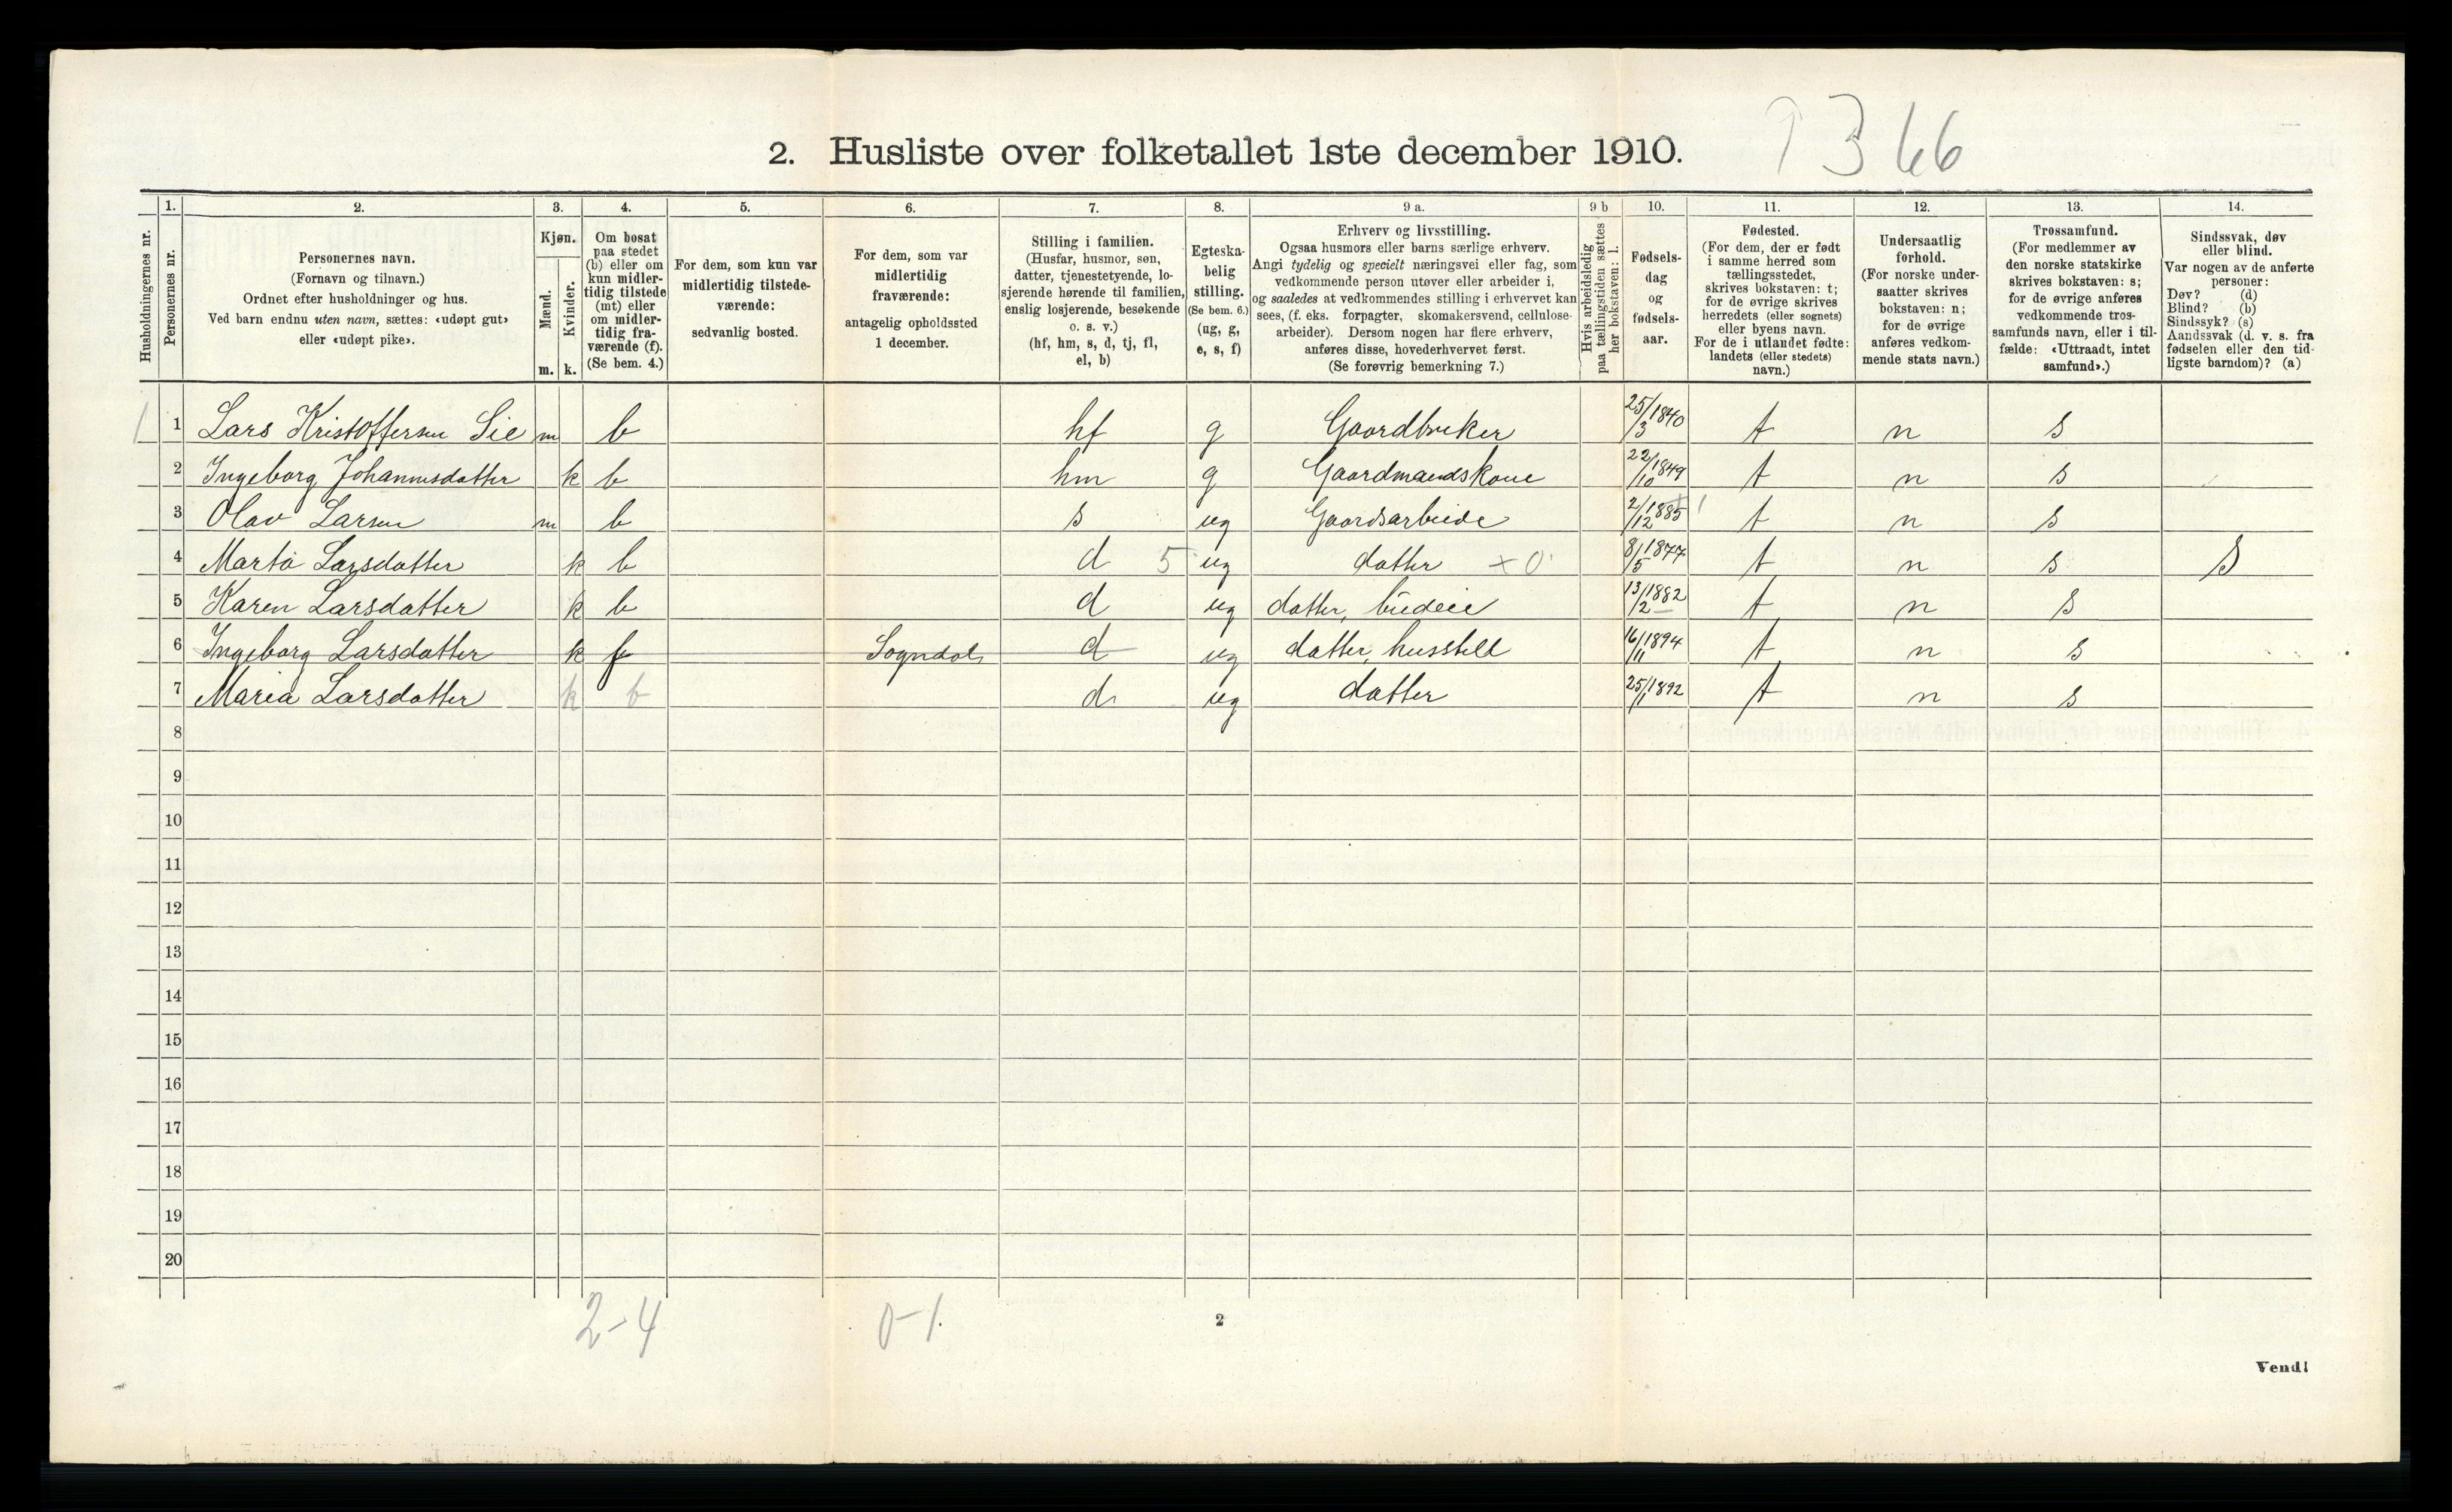 2. Husliste over folketallet 1ste december 1910.
366
Husholdningernes nr.
1.
Personernes nr.
2.
Personernes navn.
(Fornavn og tilnavn.)
Ordnet efter husholdninger og hus.
Ved barn endnu uten navn, sættes: «udøpt gut»
eller «udøpt pike».
3.
Kjøn.
Mænd.
Kvinder.
m. k.
4.
Om bosat
paa stedet
(b) eller om
kun midler-
tidig tilstede
(mt) eller
om midler-
tidig fra-
værende (f).
(Se bem. 4.)
5.
For dem, som kun var
midlertidig tilstede-
værende:
sedvanlig bosted.
6.
For dem, som var
midlertidig
fraværende:
antagelig opholdssted
1 december.
7.
Stilling i familien.
(Husfar, husmor, søn,
datter, tjenestetyende, lo-
sjerende hørende til familien,
enslig losjerende, besøkende
o. s. v.)
(hf, hm, s, d, tj, fl,
el, b)
8.
Egteska-
belig
stilling.
(Se bem. 6.)
(ug, g,
e, s, f)
9 a.
Erhverv og livsstilling.
Ogsaa husmors eller barns særlige erhverv.
Angi tydelig og specielt næringsvei eller fag, som
vedkommende person utøver eller arbeider i,
og saaledes at vedkommendes stilling i erhvervet kan
sees, (f. eks. forpagter, skomakersvend, cellulose-
arbeider). Dersom nogen har flere erhverv,
anføres disse, hovederhvervet først.
(Se forøvrig bemerkning 7.)
9 b
Hvis arbeidsledig
paa tællingstiden sættes
her bokstaven: l.
10.
Fødsels-
dag
og
fødsels-
aar.
11.
Fødested.
(For dem, der er født
i samme herred som
tællingsstedet,
skrives bokstaven: t;
for de øvrige skrives
herredets (eller sognets)
eller byens navn.
For de i utlandet fødte:
landets (eller stedets)
navn.)
12.
Undersaatlig
forhold.
(For norske under-
saatter skrives
bokstaven: n;
for de øvrige
anføres vedkom-
mende stats navn.)
13.
Trossamfund.
(For medlemmer av
den norske statskirke
skrives bokstaven: s;
for de øvrige anføres
vedkommende tros-
samfunds navn, eller i til-
fælde: «Uttraadt, intet
samfund».)
14.
Sindssvak, døv
eller blind.
Var nogen av de anførte
personer:
Døv? (d)
Blind? (b)
Sindssyk? (s)
Aandssvak (d. v. s. fra
fødselen eller den tid-
ligste barndom)? (a)
1 1 Lars Kristoffersen Sie m b hf g Gaardbruker 25/3 1840 t n s
2 Ingeborg Johannesdatter k b hm g Gaardmandskone 22/10 1849 t n s
3 Olav Larsen m b s ug Gaardsarbeide 2/12 1885 t n s
4 Marta Larsdatter k b d 5 ug datter x 0 8/5 1877 t n s S
5 Karen Larsdatter k b d ug datter, budeie 13/2 1882 t n s
6 Ingeborg Larsdatter k f Sogndal d ug datter, husstell 16/11 1894 t n s
7 Maria Larsdatter k b d ug datter 25/1 1892 t n s
8
9
10
11
12
13
14
15
16
17
18
19
20
2-4 0-1.
2
Vend!